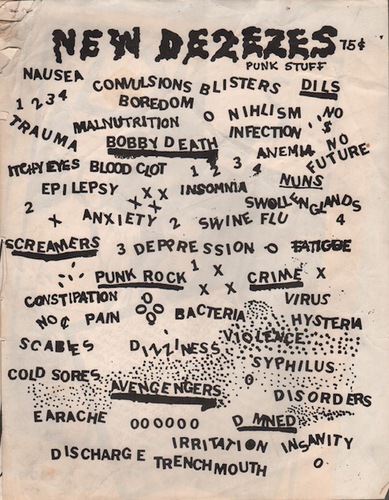 NEW DEZEZES 75¢
PUNK STUFF
NAUSEA CONVULSIONS BLISTERS DILS
1 2 3 4 BOREDOM
TRAUMA MALNUTRITION O NIHLISM NO $
BOBBY DEATH INFECTION
ITCHY EYES BLOOD CLOT 1 2 3 4 ANEMIA NO FUTURE
EPILEPSY X X X X INSOMNIA NUNS
2 X ANXIETY 2 SWINE FLU SWOLLEN GLANDS 4
SCREAMERS 3 DEPRESSION O FATIGUE
PUNK ROCK 1 X X X CRIME X
CONSTIPATION VIRUS
NO ¢ PAIN O O O O BACTERIA HYSTERIA
SCABIES DIZZINESS VIOLENCE
COLD SORES SYPHILUS
AVENGENGERS X O DISORDERS
EARACHE OOOOOO D MNED
IRRITATION INSANITY
DISCHARGE TRENCHMOUTH O